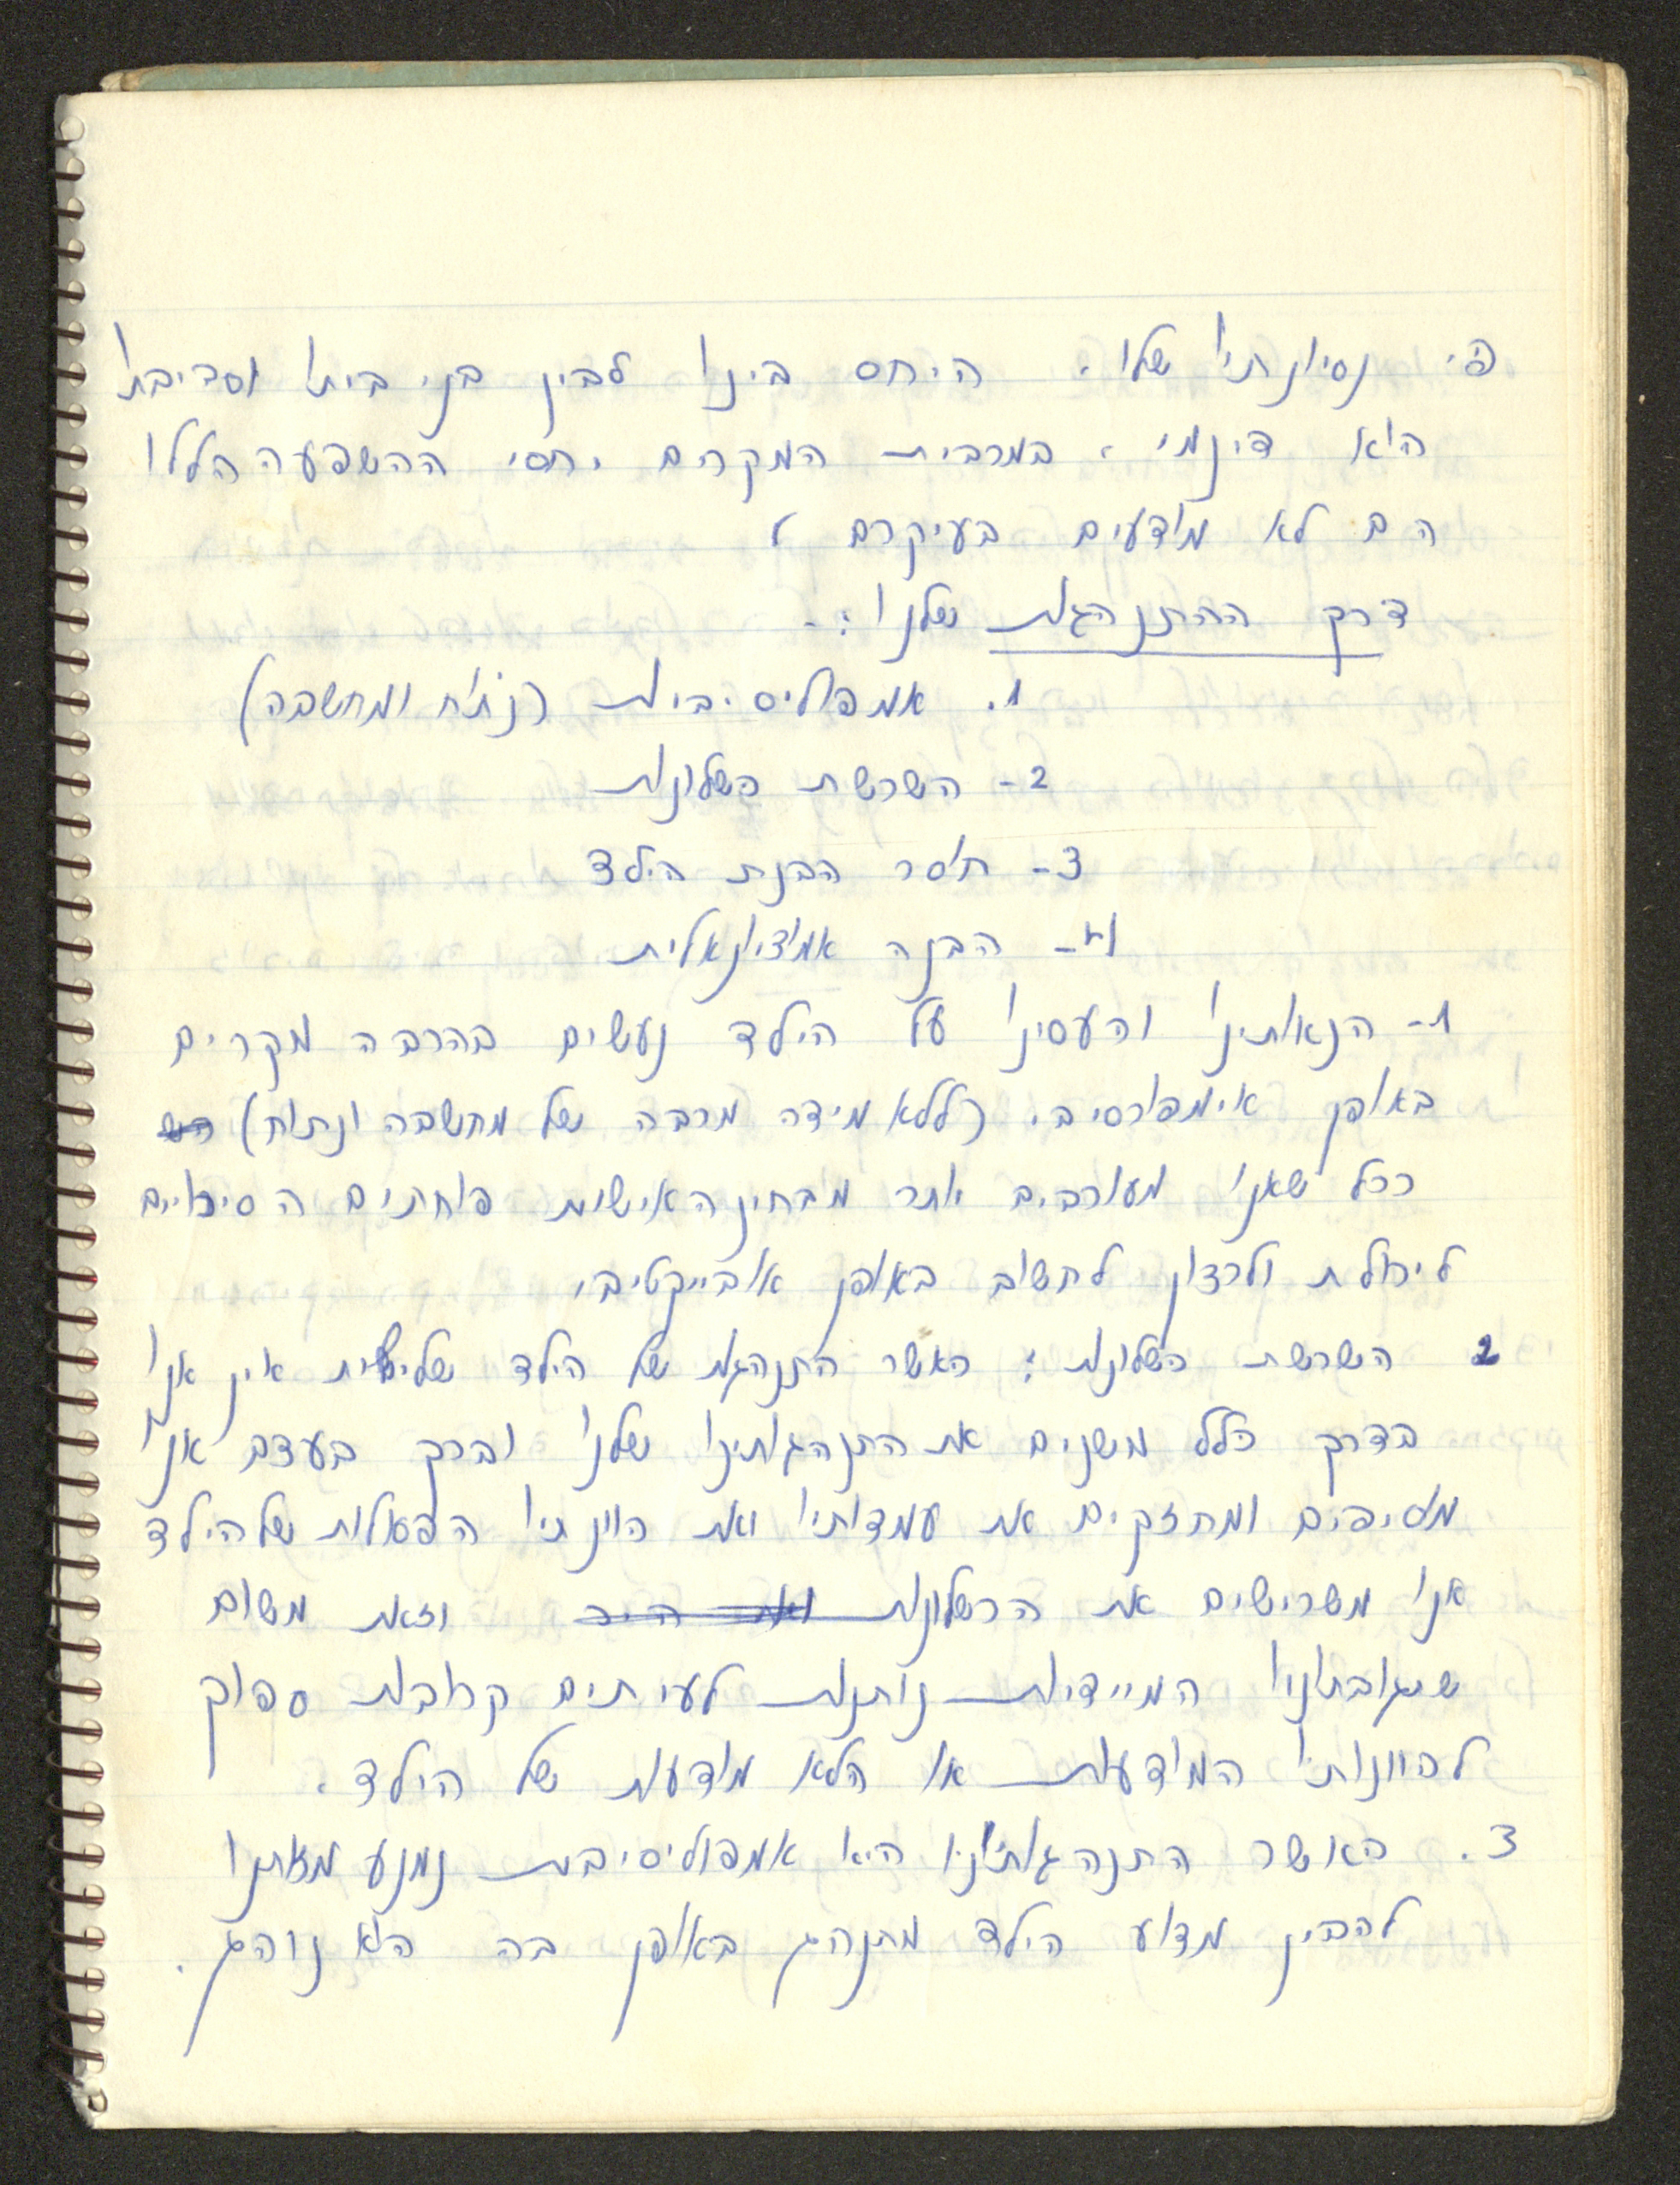 פי נסיונתיו שלו. היחס בינו לבין בני ביתו וסביבתו
הוא דינמי. במרבית המקרים יחסי ההשפעה הללו
הם לא מודעים בעיקרם
דרך ההתנהגות שלנו:-
1. אמפולסיביות (נתוח ומחשבה)
2- השרשת כשלונות
3- חוסר הבנת הילד
4- הבנה אמוציונאלית
1- הנאותינו וכעסינו על הילד נעשים בהרבה מקרים
באופן אימפורסיבי. (ללא מידה מרבה של מחשבה ונתוח)
ככל שאנו מעורבים יותר מבחינה אישות פוחתים הסיכויים
ליכולת ולרצון לחשוב באופן אובייקטיבי
2 השרשת כשלונות: כאשר התנהגות של הילד שלילית אין אנו
בדרך כלל משנים את התנהגותינו שלנו ובכך בעצם אנו
מוסיפים ומחזקים את עמדותיו ואת כוונתיו הפסולות של הילד
אנו משרישים את הכשלונות וזאת משום
שתגובתנו המיידית נותנת לעיתים קרובות ספוק
לכוונותיו המודעות או הלא מודעות של הילד.
3. כאשר התנהגותינו היא אמפוליסיבית נמנע מאתנו
להבין מדוע הילד מתנהג באופן בה הוא נוהג.